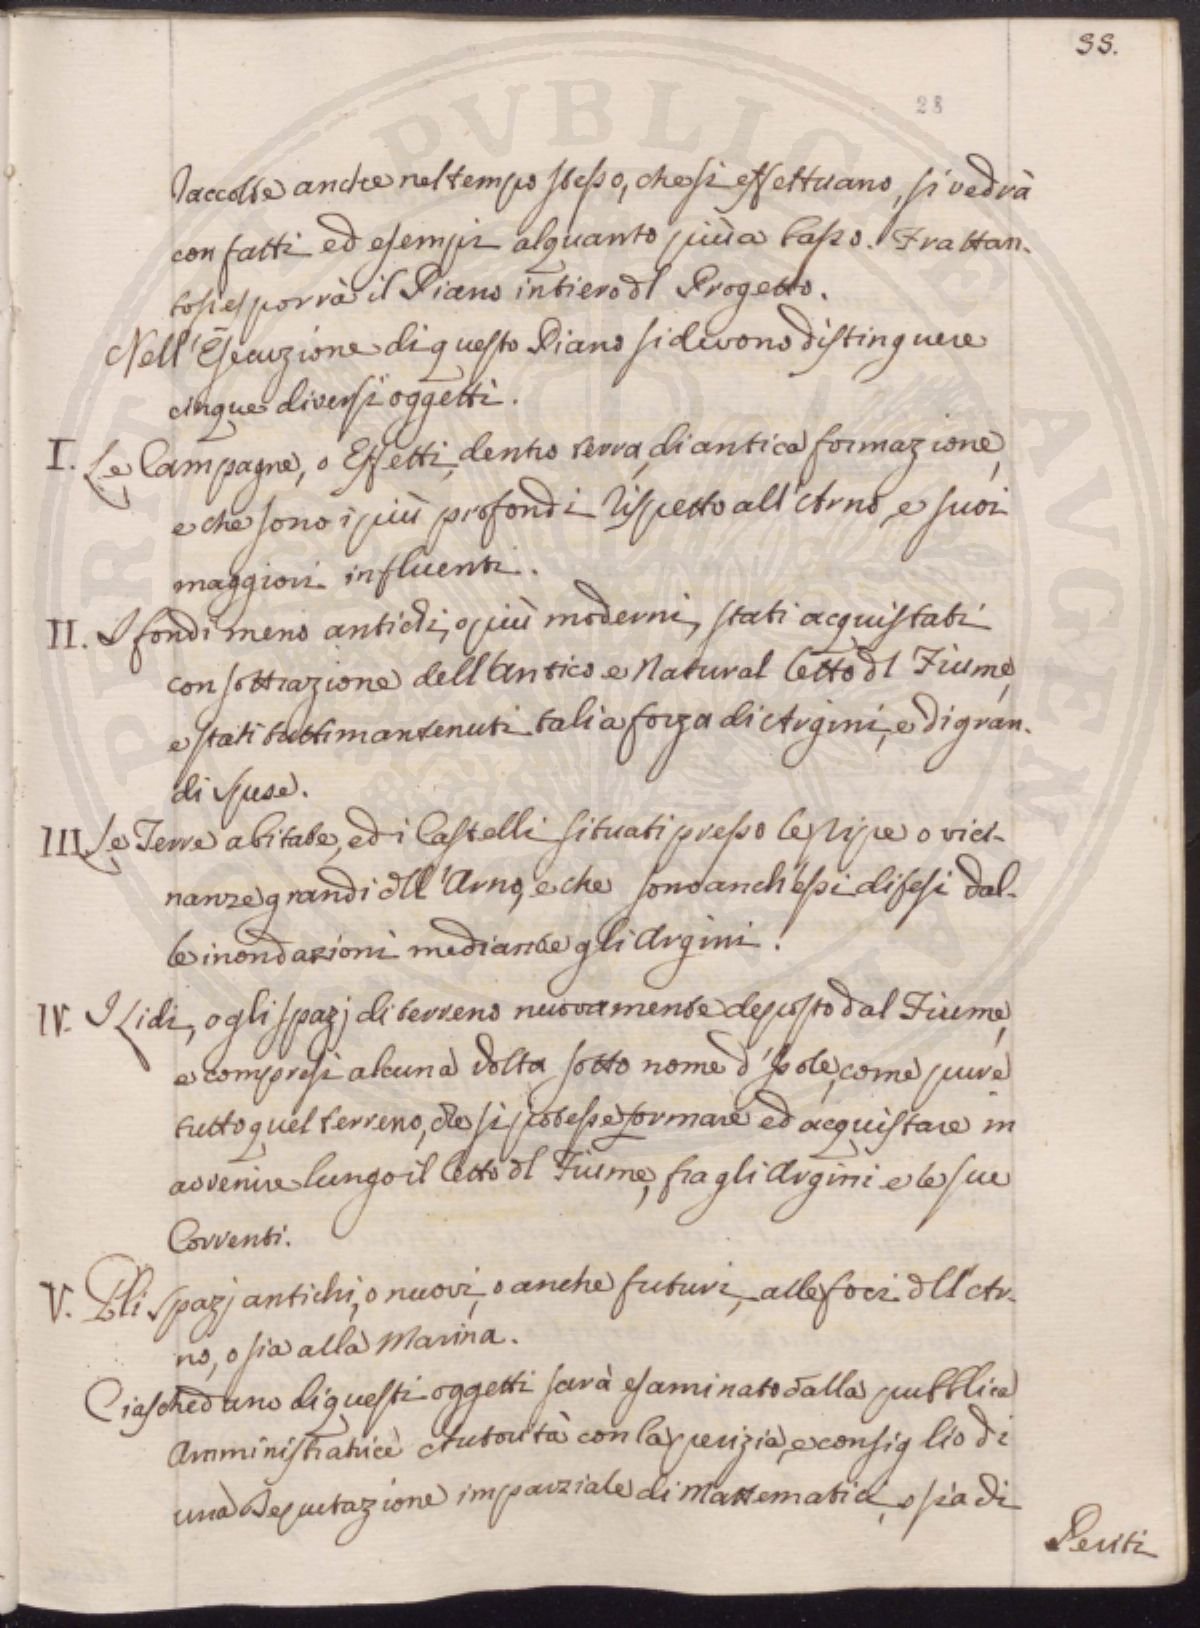 55.
28
Raccolte anche nel tempo stesso, che si effettuano, si vedrà
con fatti ed esempi alquanto più a basso. Frattan-
to si esporrà il Piano intiero dl Progetto.
Nell'Esecuzione di questo Piano si devono distinguere
cinque diversi oggetti.
I. Le Campagne, o Effetti, dentro terra, di antica formazione,
e che sono i più profondi rispetto all'Arno, e suoi
maggiori influenti.
II. I fondi meno antichi, o più moderni, stati acquistati
con sottrazione dell'Antico e Natural letto dl Fiume,
e stati tutti mantenuti tali a forza di Argini, e di gran-
di spese.
III. Le Terre abitate, ed i Castelli situati presso le ripe o vici-
nanze grandi dll'Arno, e che sono anch'essi difesi dal-
le inondazioni mediante gli Argini.
IV. I Lidi, o gli spazj di terreno nuovamente deposto dal Fiume,
e compresi alcuna volta sotto nome d'Isole, come pure
tutto quel terreno, che si potesse formare ed acquistare in
avvenire lungo il letto dl Fiume, fra gli Argini e le sue
Correnti.
V. Gli spazj antichi, o nuovi, o anche futuri, alle foci dll'Ar-
no, o sia alla Marina.
Ciascheduno di questi oggetti sarà esaminato dalla pubblica
Amministratrice Autorità con la perizia, e consiglio di
una Deputazione imparziale di Mattematici, o sia di
Periti
PVBLICAE AVGENDAE